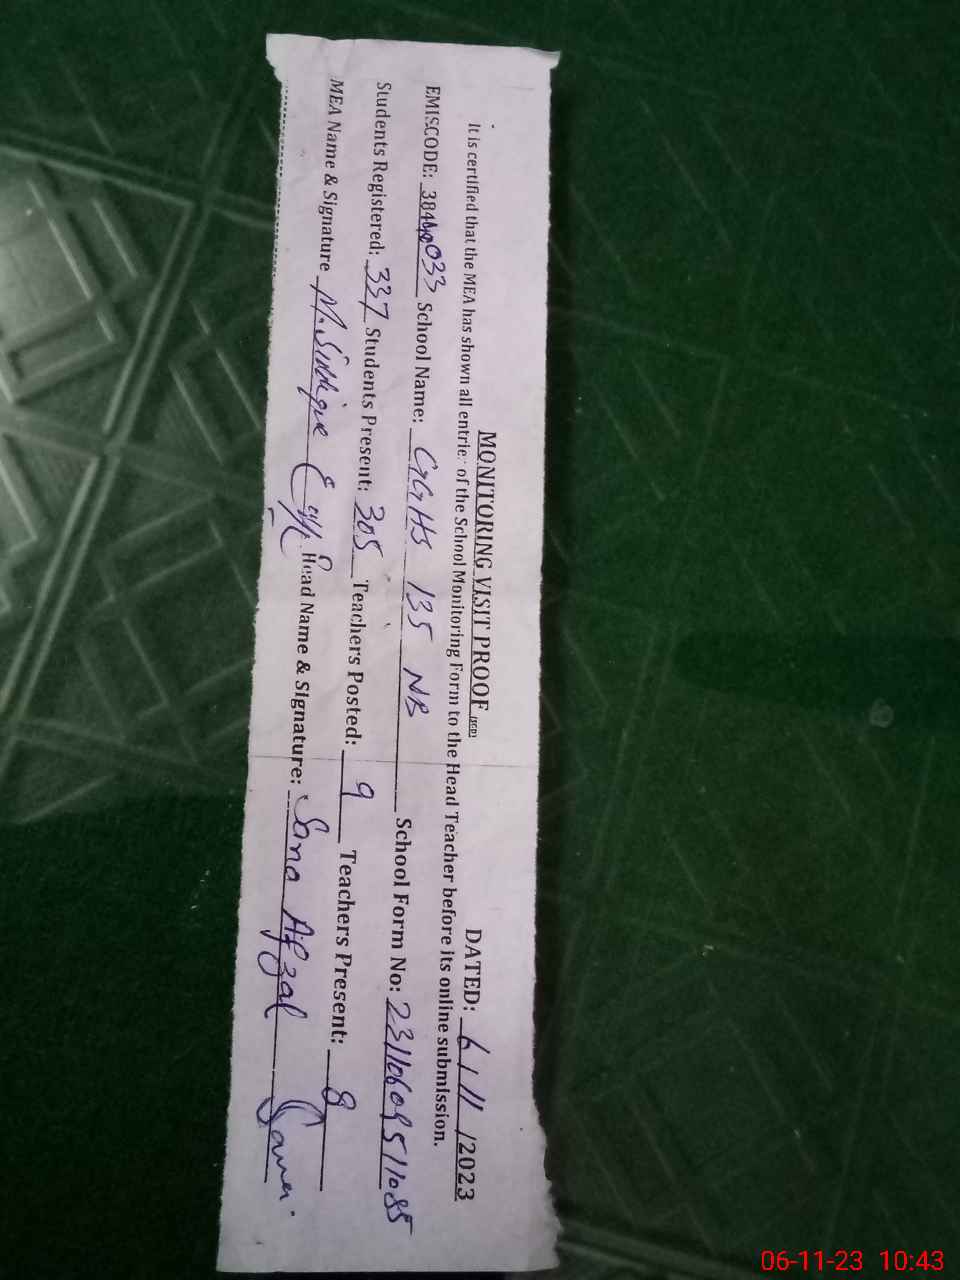 MONITORING VISIT PROOF (SGD) DATED: 6/11/2023
It is certified that the MEA has shown all entries of the School Monitoring Form to the Head Teacher before its online submission.
EMISCODE: 384 033 School Name: GGHS 135 NB School Form No: 23110609511085
Students Registered: 337 Students Present: 305 Teachers Posted: 9 Teachers Present: 8
MEA Name & Signature M. Siddique Head Name & Signature: Sana Afzal
06-11-23 10:43